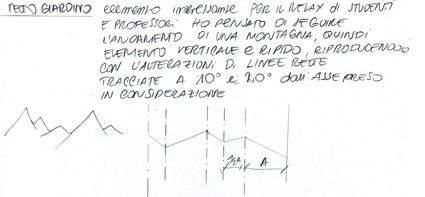 TETTO GIARDINO elemento interessante PER IL RELAX di STUDENTI
E PROFESSORI. HO PENSATO DI SEGUIRE
L'ANDAMENTO DI UNA MONTAGNA, QUINDI
ELEMENTO VERTICALE e RIPIDO, RIPRODUCENDOLO
CON L'ALTERAZIONI DI LINEE RETTE
TRACCIATE A 10° e 20° dall'ASSE PRESO
IN CONSIDERAZIONE
1/2A A